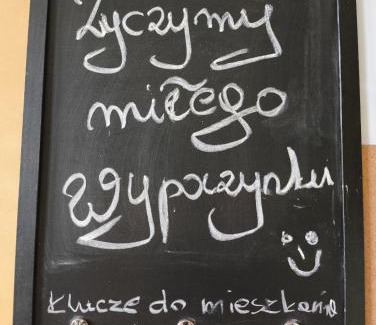 Życzymy
miłego
wypoczynku
klucze do mieszkania